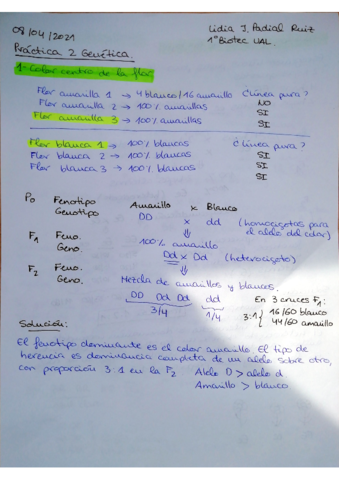 08/04/2021
Lidia J. Padial Ruiz
1º Biotec UAL
Práctica 2 Genética.
1. Color centro de la flor
Flor amarilla 1 → 4 blanco/16 amarillo ¿Línea pura?
NO
Flor amarilla 2 → 100% amarillas SI
Flor amarilla 3 → 100% amarillas SI
Flor blanca 1 → 100% blancas ¿Línea pura?
SI
Flor blanca 2 → 100% blancas SI
Flor blanca 3 → 100% blancas SI
P0 Fenotipo Amarillo x Blanco
Genotipo DD x dd (homocigotos para el alelo del color)
⇓
F1 Feno. 100% amarillo
Geno. Dd x Dd (heterocigoto)
⇓
F2 Feno. Mezcla de amarillos y blancos.
Geno. DD Dd Dd dd
3/4 1/4
En 3 cruces F1:
3:1 { 16/60 blanco
44/60 amarillo
Solución:
El fenotipo dominante es el color amarillo. El tipo de
herencia es dominancia completa de un alelo sobre otro,
con proporción 3:1 en la F2 Alelo D > alelo d
Amarillo > blanco